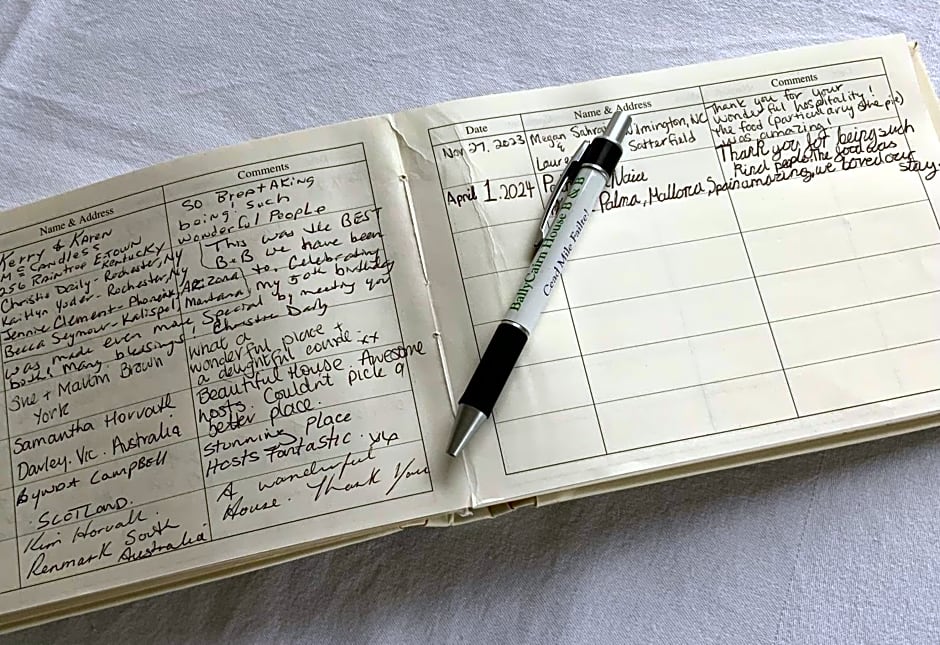 Name & Address
Comments
Kerry & Karen
McCandless
256 Raintree E-Town
Kentucky
So BreptAking
being such
wonderful People
Christie Daily - Rochester, NY
Kaitlyn Yoder - Rochester, NY
Jennie Clement - Phoenix, Arizona
Becca Seymour - Kalispel, Montana
This was the BEST
B+B we have been
to. Celebrating
my 50th birthday
was made even more special by meeting you
both! Many blessings
Christie Daily
Sue + Mavin Brown
York
What a
wonderful place +
a delightful couple xx
Samantha Horvath
Darley. Vic. Australia
Beautiful House. Awesome
hosts. Couldn't pick a
better place.
Campbell
SCOTLAND.
Stunning place
Hosts Fantastic. xx
Kim Horvath.
Renmark South
Australia
A wonderful
House. Thank You
Date
Name & Address
Comments
Nov 27, 2023
Megan Wilmington, NC
&
Satterfield
Thank you for your
wonderful hospitality!
the food (particularly the pie)
was amazing
April 1. 2024
Palma, Mallorca, Spain
Thank you for being such
kind people. the food was
amazing, we loved our
stay
BallyCairn House B & B
Cead Mile Failte!